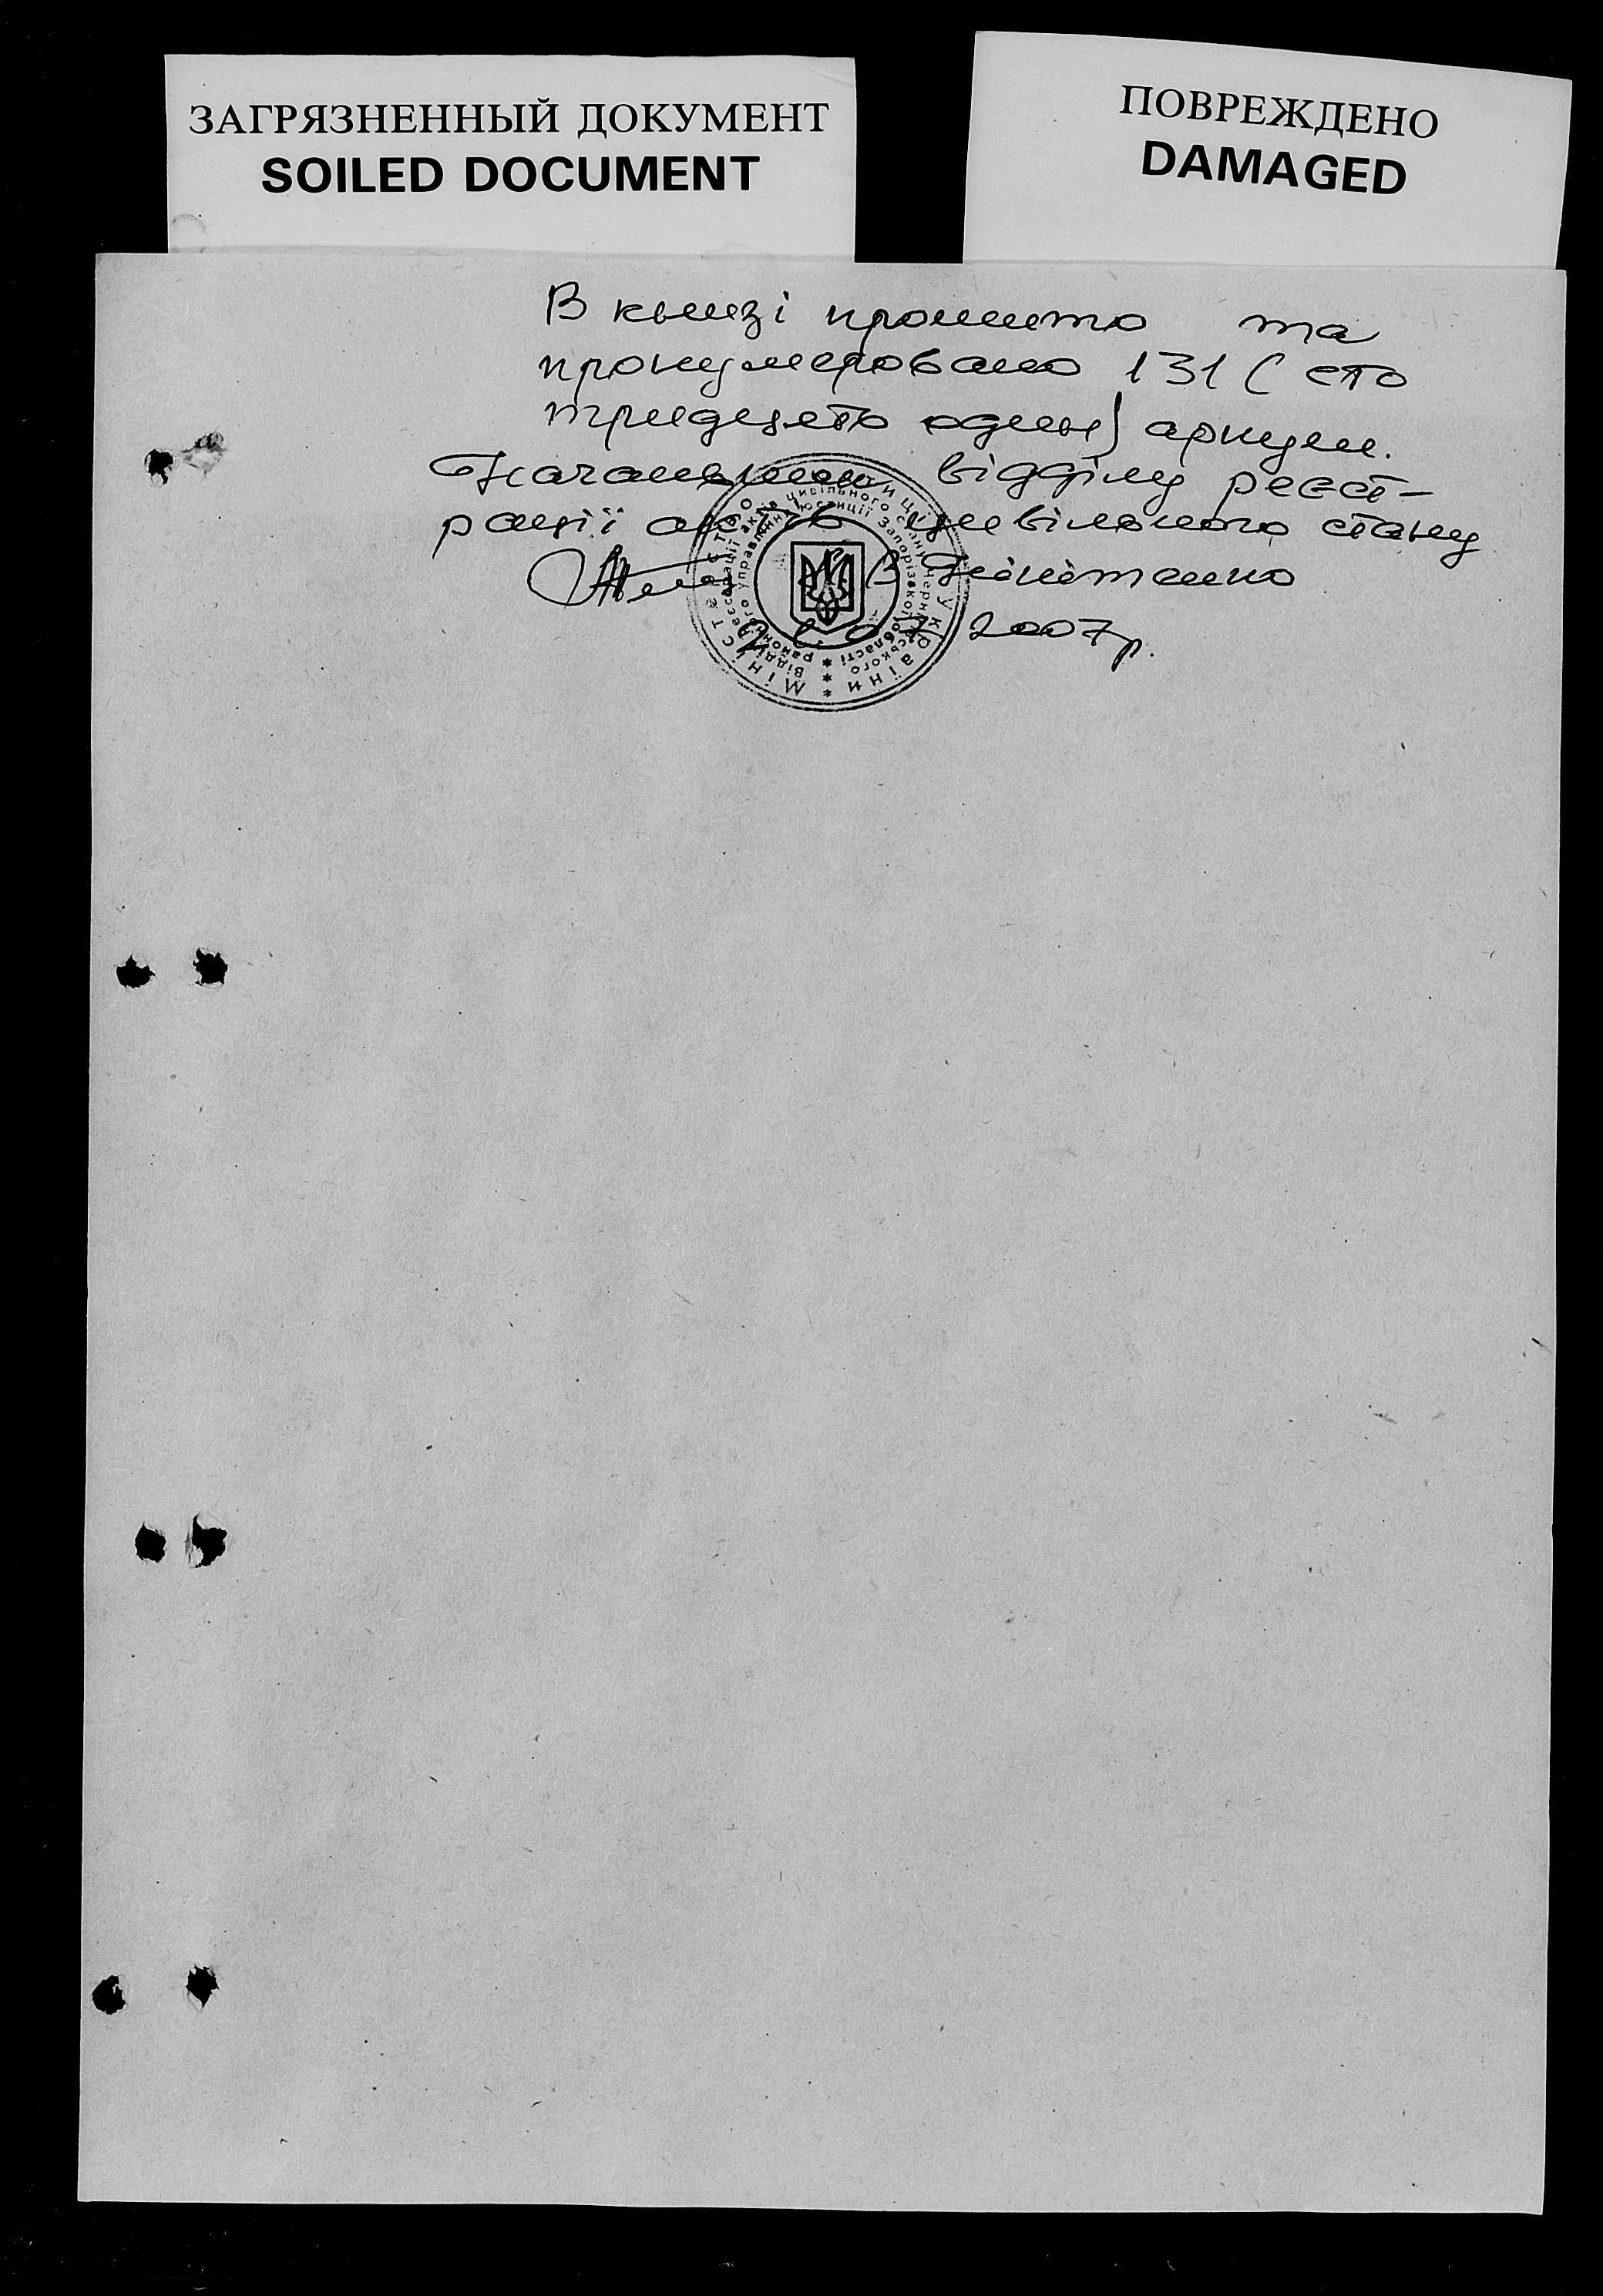 ЗАГРЯЗНЕННЫЙ ДОКУМЕНТ
SOILED DOCUMENT
ПОВРЕЖДЕНО
DAMAGED
В книзі прошито та
пронумеровано 131 (сто
тридцять один) аркуш.
Начальник відділу реєст-
рації актів цивільного стану
В Нікітенко
07 2007 р.
Міністерство юстиції України
Відділ реєстрації актів цивільного стану
районного управління юстиції Запорізької області